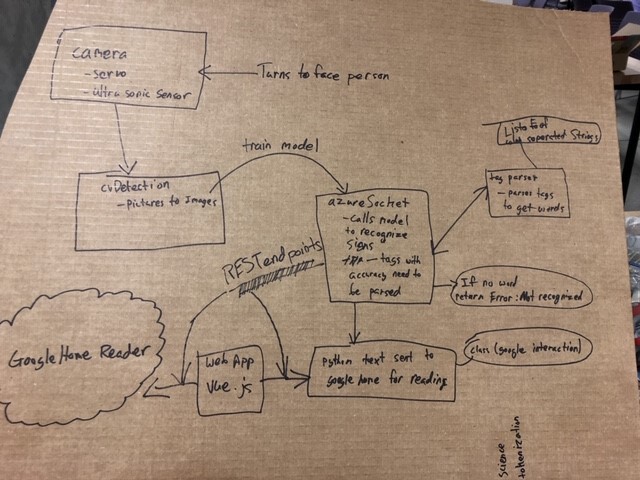 camera
- servo
- ultra sonic sensor
Turns to face person
cvDetection
- pictures to Images
train model
azureSocket
- calls model
to recognize
signs
- tags with
accuracy need to
be parsed
List of
separated Strings
tag parser
- parses tags
to get words
If no word
return Error: Not recognized
REST endpoints
Google Home Reader
Web App
Vue.js
python text sent to
google home for reading
class (google interaction)
science
tokenization